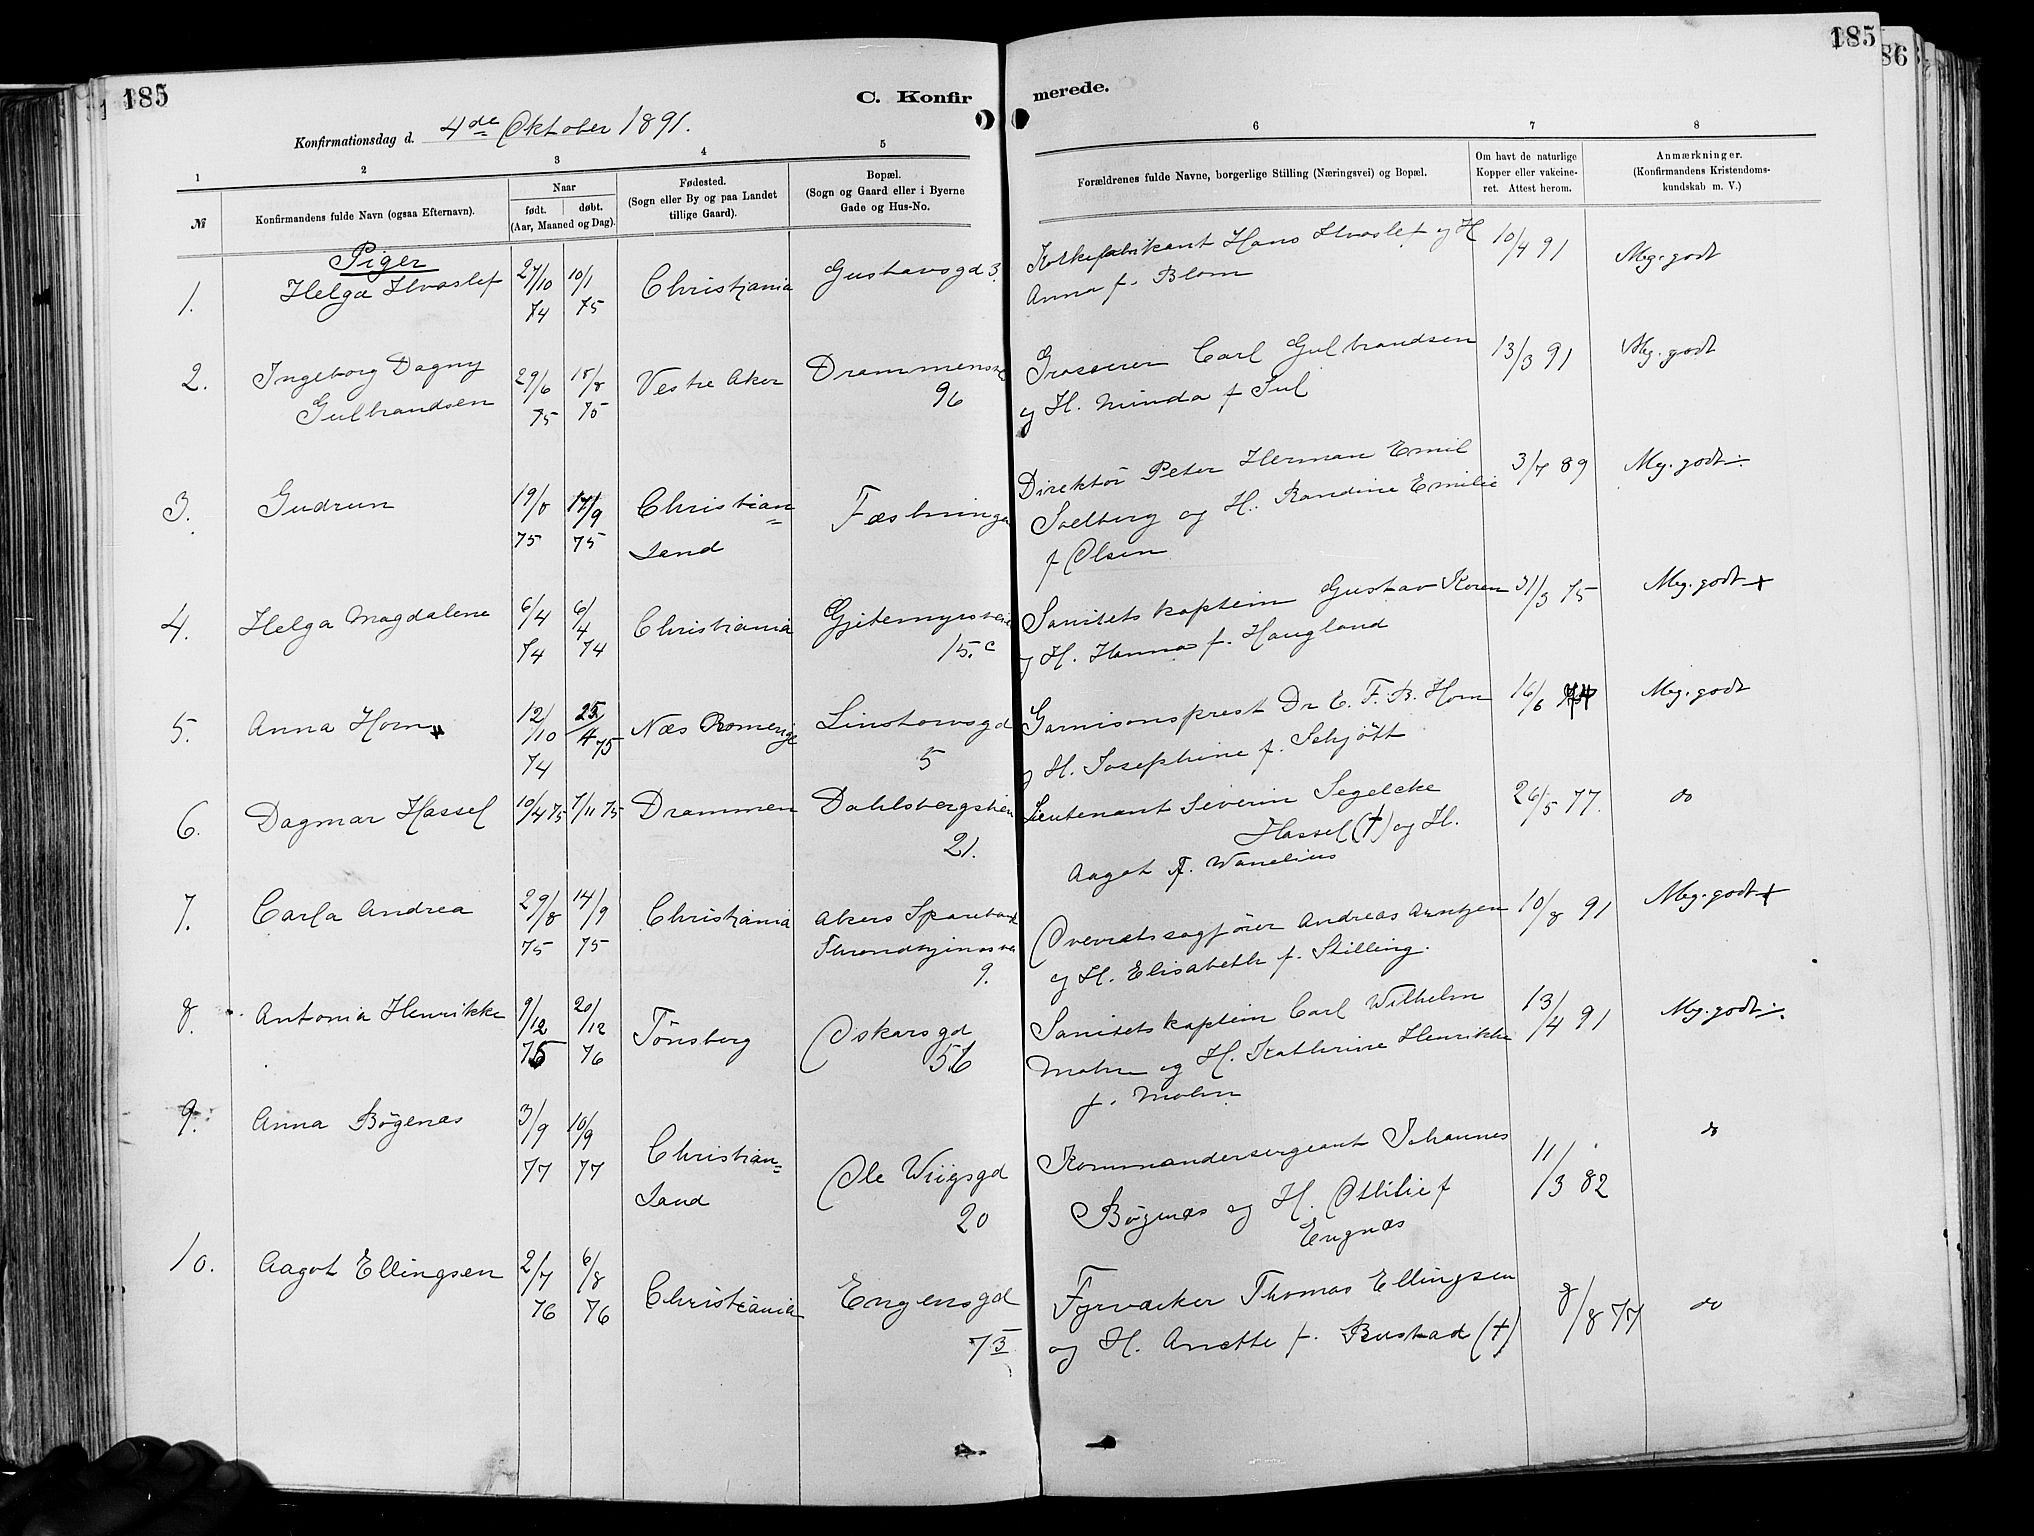 185
185
86
C. Konfir
merede.
Konfirmationsdag d. 4de Oktober 1891.
1
2
3
4
5
6
7
8
№
Konfirmandens fulde Navn (ogsaa Efternavn).
Naar
født. døbt.
(Aar, Maaned og Dag).
Fødested.
(Sogn eller By og paa Landet
tillige Gaard).
Bopæl.
(Sogn og Gaard eller i Byerne
Gade og Hus-No.
Forældrenes fulde Navne, borgerlige Stilling (Næringsvei) og Bopæl.
Om havt de naturlige
Kopper eller vakcine-
ret. Attest herom.
Anmærkninger.
(Konfirmandens Kristendoms-
kundskab m. V.)
Piger
1. Helga Hvaslef 27/10 74 10/1 75 Christiania Gustavsgd 3.
Korkefabrikant Hans Hvaslef og H 10/4 91 Mg. godt
Anna f. Blom
2. Ingeborg Dagny 29/6 75 15/8 75 Vestre Aker Drammensv
Gulbrandsen 96
Grosserer Carl Gulbrandsen 13/3 91 Mg. godt
og H. Minda f
3. Gudrun 19/8 75 17/9 75 Christian=
sand
Direktør Peter Herman Emil 3/7 89 Mg. godt
Solberg og H. Randine Emilie
f Olsen
4. Helga Magdalene 6/4 74 6/4 74 Christiania Gjetemyrsvei
15. c
Sanitetskaptein Gustav Koren 31/3 75 Mg. godt +
og H. Hanna f. Haugland
5. Anna Horn 12/10 74 25/4 75 Næs Romerige Linstowsgd
5
Garnisonsprest Dr E. F. B. Horn 16/6 Mg. godt
og H. Josephine f. Schjøtt
6. Dagmar Hassel 10/4 75 7/11 75 Drammen Dahlsbergstien
21.
Lieutenant Severin Segelcke 26/5 77. do
Hassel (†) og H.
Aagot f. Wanelius
7. Carla Andrea 29/8 75 14/9 75 Christiania Akers Sparebank
Throndhjemsvei
9.
Overretssagfører Andreas Arntzen 10/8 91 Mg. godt +
og H. Elisabeth f. Stilling.
8. Antonia Henrikke 9/12 75 20/12 76 Tønsberg Oskarsgd
56
Sanitetskaptein Carl Wilhelm 13/4 91 Mg. godt
Mohn og H. Kathrine Henrikke
f. Mohn
9. Anna Bøgenæs 3/9 77 10/9 77 Christian=
sand
Ole Wiigsgd
20
Kommandersergeant Johannes 11/3 82 do
Bøgenæs og H. Ottilie f
Engnæs
10. Aagot Ellingsen 2/7 76 6/8 76 Christiania Engensgd
73
Fyrværker Thomas Ellingsen 8/8 77 do
og H. Anette f. Rustad (†)